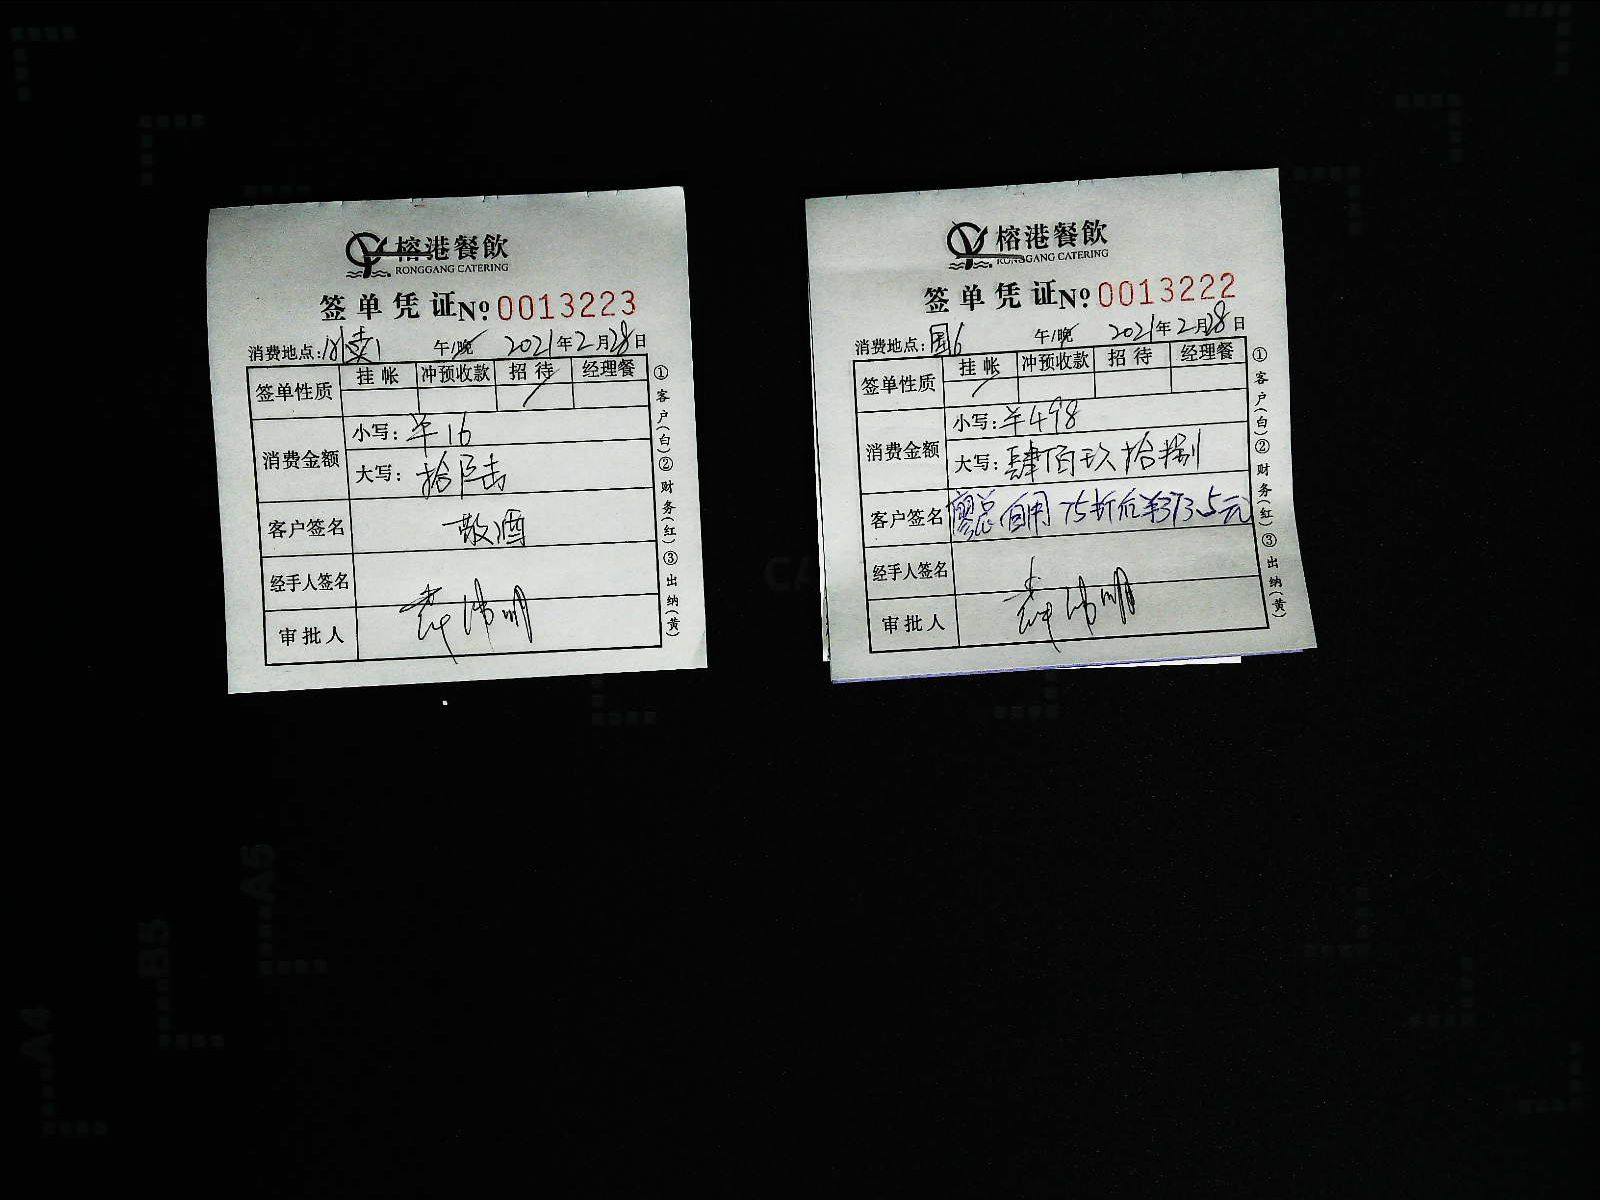 榕港餐飲
RONGGANG CATERING
签单凭证№0013223
消费地点:外卖1 午/晚 2021年2月28日
签单性质 挂帐 冲预收款 招待 经理餐
消费金额 小写: ¥16
大写: 拾陆
客户签名 敬酒
经手人签名
审批人
①客户(白)②财务(红)③出纳(黄)
榕港餐飲
RONGGANG CATERING
签单凭证№0013222
消费地点:国6 午/晚 2021年2月28日
签单性质 挂帐 冲预收款 招待 经理餐
消费金额 小写: ¥498
大写: 肆佰玖拾捌
客户签名 廖总 自用 75折后¥373.5元
经手人签名
审批人
①客户(白)②财务(红)③出纳(黄)
A5
B5
A4